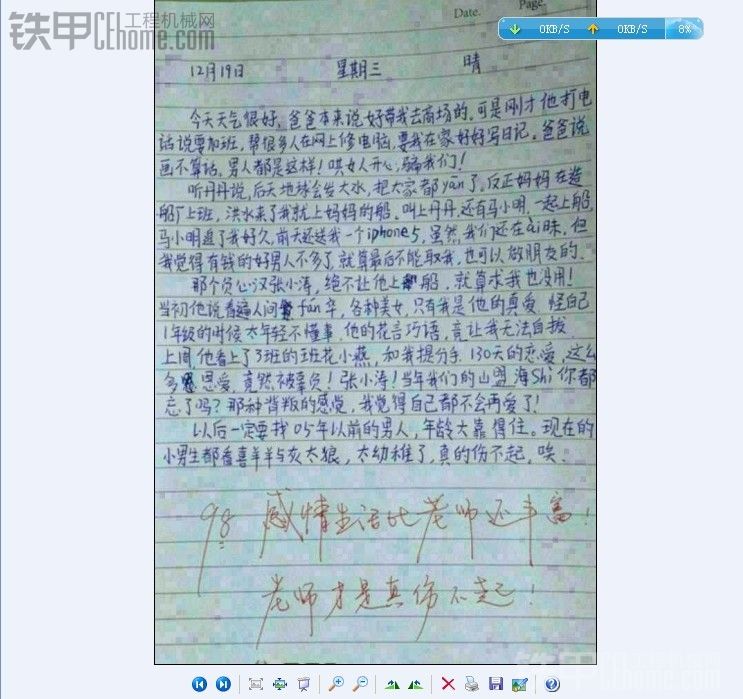 铁甲 工程机械网
CEhome.com
Date. Page.
0KB/S 0KB/S 8%
12月19日 星期三 晴
今天天气很好，爸爸本来说好带我去商场的，可是刚才他打电
话说要加班，帮很多人在网上修电脑，要我在家好好写日记。爸爸说
画不算话，男人都是这样！哄女人开心，骗我们！
听丹丹说，后天地球会发大水，把大家都yān了，反正妈妈在造
船厂上班，洪水来了我就上妈妈的船，叫上丹丹，还有马小明，一起上船，
马小明追了我好久，前天还送我一个iphone5，虽然我们还在ài昧，但
我觉得有钱的好男人不多了，就算最后不能取我，也可以做朋友的。
那个负心汉张小涛，绝不让他上船，就算求我也没用！
当初他说看遍人间fán华，各种美女，只有我是他的真爱，怪自己
1年级的时候太年轻不懂事，他的花言巧语，竟让我无法自拔
上周，他看上了3班的班花小燕，和我提分手，130天的恋爱，这么
多恩爱，竟然被辜负！张小涛！当年我们的山盟海Shi你都
忘了吗？那种背叛的感觉，我觉得自己都不会再爱了！
以后一定要找05年以前的男人，年龄大靠得住。现在的
小男生都看喜羊羊与灰太狼，太幼稚了，真的伤不起，唉。
98 感情生活比老师还丰富！
老师才是真伤不起！
铁甲 工程机械网
CEhome.com